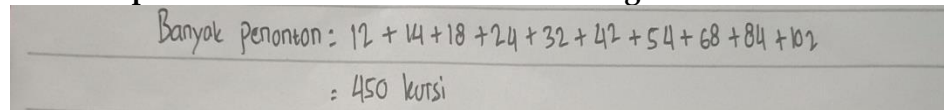 Banyak Penonton = 12 + 14 + 18 + 24 + 32 + 42 + 54 + 68 + 84 + 102
= 450 kursi